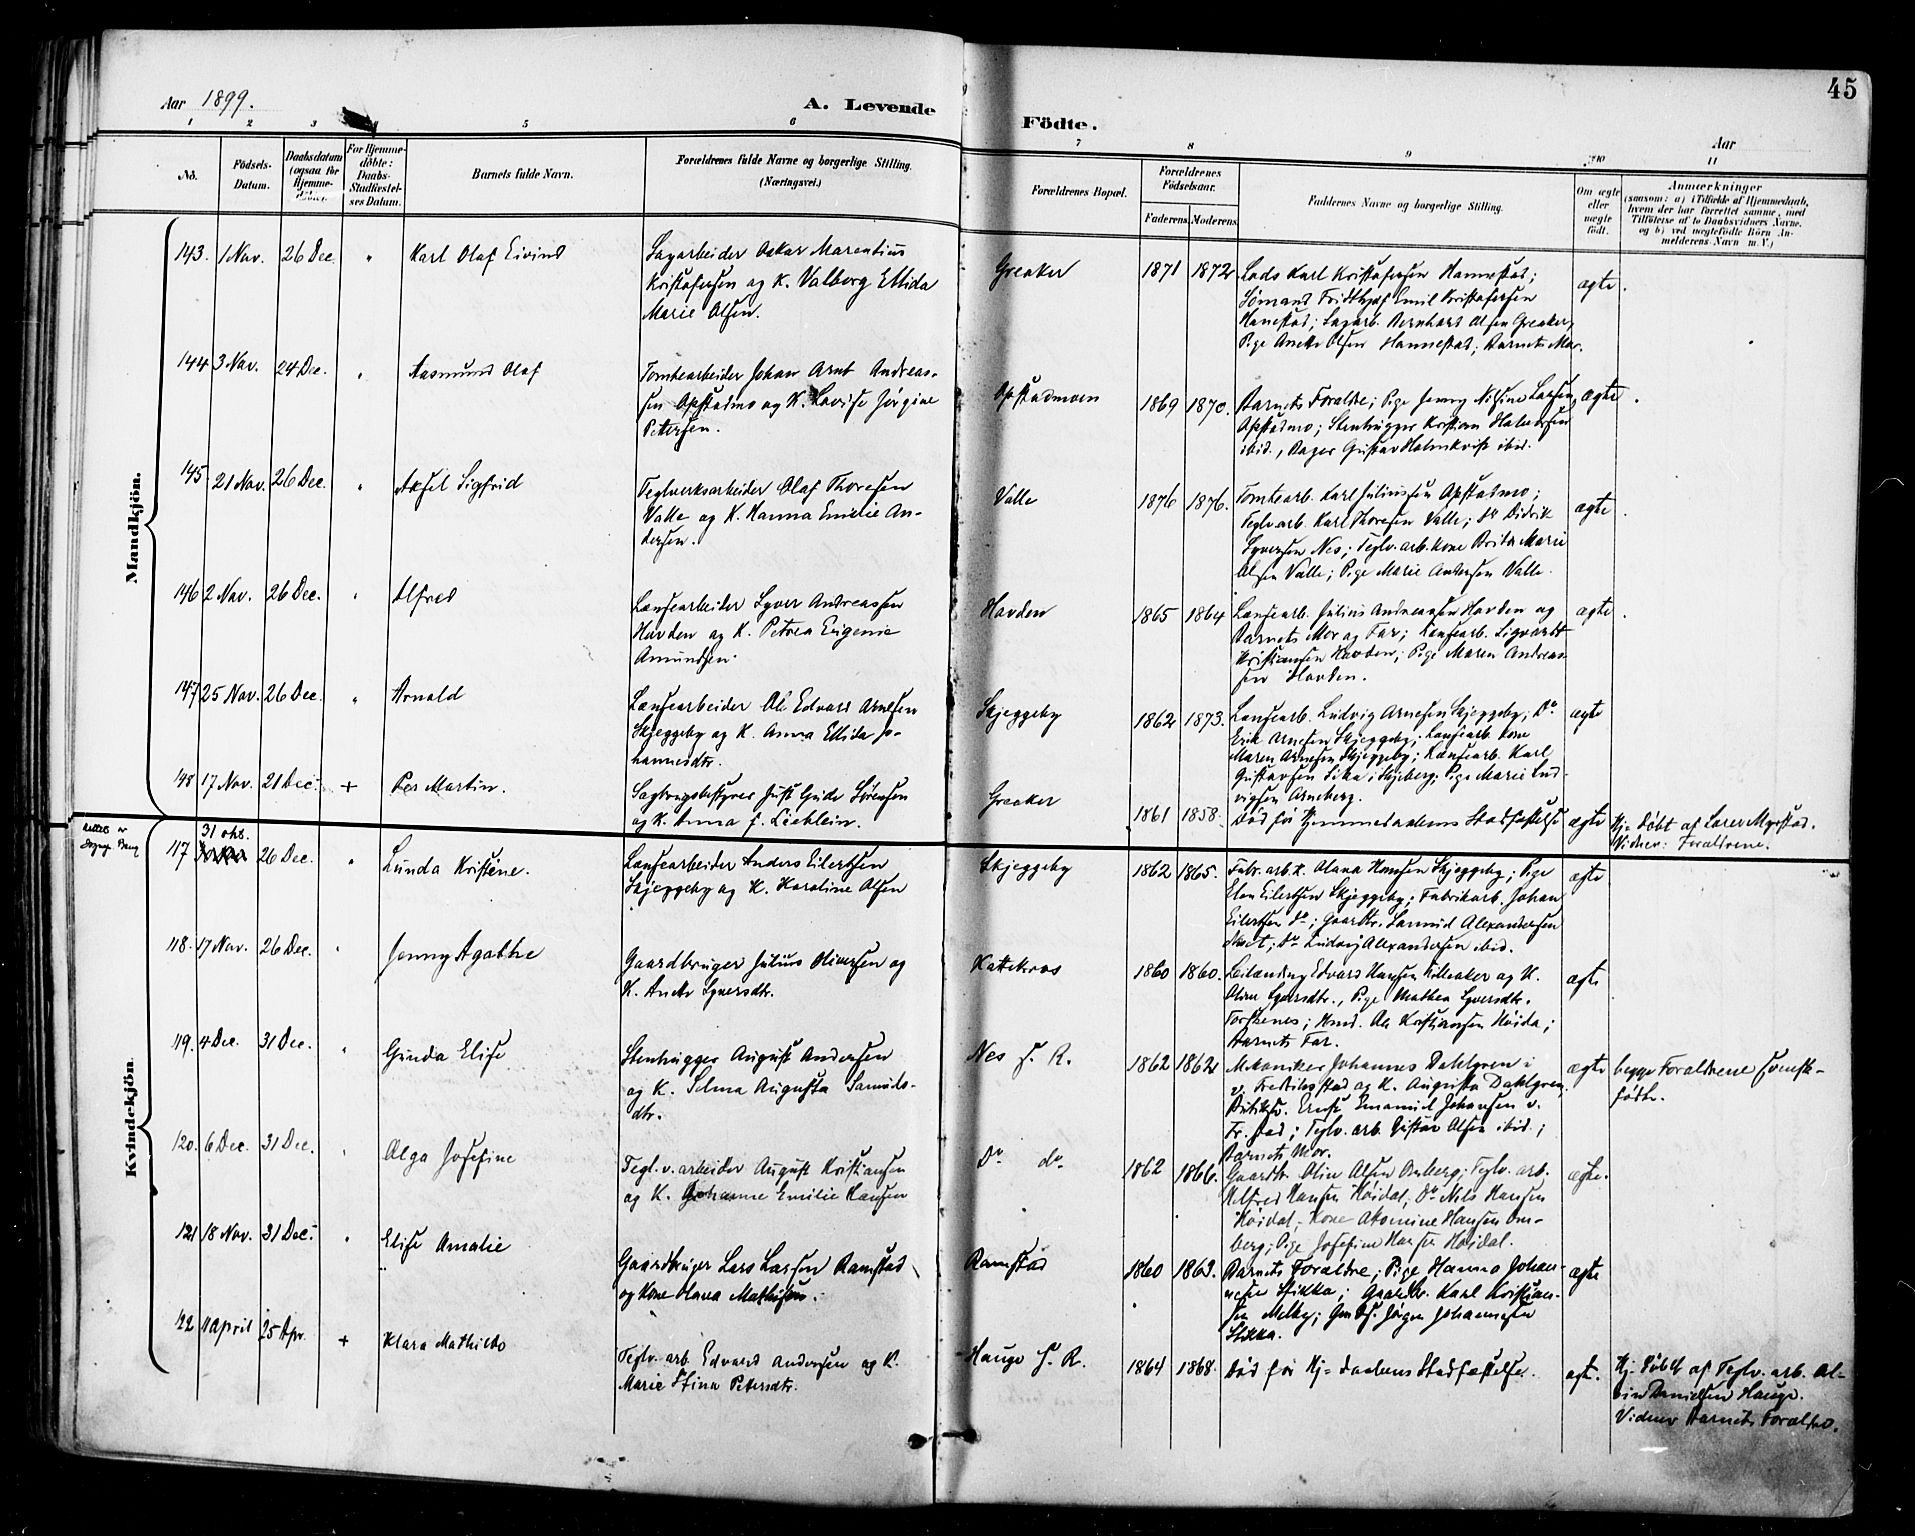 45
Aar 1899.
A. Levende
Födte.
Aar
1 2 3 4 5 6 7 8 9 10 11
No.
Födsels-
Datum.
Daabsdatum
(ogsaa for
Hjemme-
döbte)
For Hjemme-
döbte:
Daabs-
Stadfæstel-
ses Datum.
Barnets fulde Navn.
Forældrenes fulde Navne og borgerlige Stilling.
(Næringsvei.)
Forældrenes Bopæl.
Forældrenes
Födselsaar.
Faderens. Moderens.
Faddernes Navne og borgerlige Stilling.
Om ægte
eller
uægte
födt.
Anmærkninger
(saasom: a) i Tilfælde af Hjemmedaab,
hvem der har forrettet samme, med
Tilföielse af to Daabsvidners Navne.
og b) ved uægtefödte Börn An-
melderens Navn m. V.)
Mandkjön.
143. 1 Nov. 26 Dec. " Karl Olaf Eivind
Sagarbeider Oskar Marentius
Kristofersen og K. Valborg Ellida
Marie Olsen.
Greaker 1871 1872
Lods Karl Kristofersen Hannestad;
Sømand Fridthjof Emil Kristofersen
Hanestad; Sagarb. Bernhard Olsen Greaker,
Pige Anette Olsen Hannestad; Barnets Mor.
ægte.
144 3 Nov. 24 Dec. " Aasmund Olaf
Tomtearbeider Johan Arnt Andreas-
sen Opstadmo og K. Lovise Jørgine
Petersen.
Opstadmoen 1869 1870.
Barnets Foraldre; Pige Jenny Nilsine Larsen
Opstadmo; Stenhugger Kristian Halvorsen
ibid., Bager Gustav Holmkvist ibid.
ægte.
145. 21 Nov. 26 Dec. " Aksel Sigfrid
Teglverksarbeider Olaf Thoresen
Valle og K. Hanna Emelie An-
dersen.
Valle 1876 1876.
Tomtearb. Karl Juliussen Opstadmo;
Teglv. arb. Karl Thoresen Valle; Do Didrik
Syversen Nes; Teglv. arb. kone Berta Marie
Olsen Valle; Pige Marie Andersen Valle.
ægte.
146 2 Nov. 26 Dec. " Alfred
Lensearbeider Syver Andreassen
Hovden og K. Petrea Eugenie
Amundsen.
Hovden 1865 1864
Lensearb. Julius Andreassen Hovden og
Barnets Mor og Far; Lensearb. Sigvardt
Kristiansen Hovden; Pige Maren Andreas-
sen Hovden.
ægte.
147 25 Nov. 26 Dec. " Arnold
Lensearbeider Ole Edvard Arnesen
Skjeggeby og K. Anna Ellida Jo-
hannesdtr.
Skjeggeby 1862 1873.
Lensearb. Ludvig Arnesen Skjeggeby; Do
Erik Arnesen Skjeggeby; Lensearb. kone
Maren Arnesen Skjeggeby; Lensearb. Karl
Gustavsen Lika i Skjeberg; Pige Marie Lud-
vigsen Arneberg.
ægte
148 17 Nov. 21 Dec. + Per Martin.
Sagbrugsbestyrer Just Gude Sørensen
og K. Anna f. Lieblein.
Greaker 1861 1858.
Død før Hjemmedaabens Stadfæstelse
ægte
Hj= døbt af Lærer Myrstad.
Vidner: Foraldrene.
Kvindekjön
117 31 okt. 26 Dec. " Lunda Kristine.
Lensearbeider Anders Eilertsen
Skjeggeby og K. Karoline Olsen
Skjeggeby 1862 1865.
Fabr. arb. k. Olava Hansen Skjeggeby; Pige
Elen Eilertsen Skjeggeby; Fabrikarb. Johan
Eilertsen Do; Gaardbr. Samuel Alexandersen
; Do Ludvig Alexandersen ibid.
ægte
118. 17 Nov. 26 Dec. " Jenny Agathe
Gaardbruger Julius Oliversen og
K. Anette Syversdtr.
1860 1860.
Leilænding Edvard Hansen og K.
Oline Syversdtr., Pige Mathea Syversdtr.
Torsbenes; Hmd. Ole Kristiansen Høida;
Barnets Far.
ægte
119. 4 Dec. 31 Dec. " Gunda Elise
Stenhugger August Andersen
og K. Selma Augusta Samuels-
dtr.
Nes f. R. 1862 1862
Mekaniker Johannes Dahlgren i
v. Fredriksstad og K. Augusta Dahlgren,
Ernst Emanuel Johansen v.
Fr. stad; Teglv. arb. Gustav Olsen ibid;
Barnets Mor.
ægte
begge Foraldrene svensk-
fødte.
120. 6 Dec. 31 Dec. " Olga Josefine
Tegl. v. arbeider August Kristiansen
og K. Johanne Emilie Hansen
Do do. 1862 1866.
Gaardbr. Olin Olsen Omberg; Teglv. arb.
Hilfred Hansen Høidal, Do Nils Hansen
Høidal, Kone Akomine Hansen Om-
berg; Pige Josefine Hansen Høidal.
ægte.
121 18 Nov. 31 Dec. " Elise Amalie
Gaardbruger Lars Larsen Ramstad
og Kone Olava Mathisen.
Ramstad 1860 1863.
Barnets Foraldre; Pige Hanna Johan-
nesen Stikka; Gaardbr. Karl Kristian-
sen Melby; Gmds. Jørgen Johannesen
Stikka.
ægte
122 11 april 25 Apr. + Klara Mathilde
Teglv. arb. Edvard Andersen og K.
Marie Stina Petersdtr.
Hauge f. R. 1864 1868.
Død før Hj= daabens Stadfæstelse.
ægte.
Hj= døbt af Teglv. arb. Al-
bin Danielsen Hauge.
Vidner Barnets Foraldre.